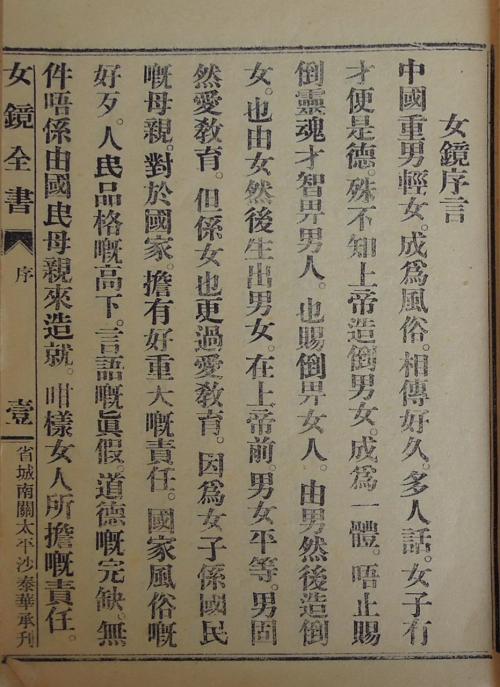 女鏡序言
中國重男輕女。成爲風俗。相傳好久。多人話。女子有
才便是德。殊不知上帝造倒男女。成爲一體。唔止賜
倒靈魂才智畀男人。也賜倒畀女人。由男然後造倒
女。也由女然後生出男女。在上帝前。男女平等。男固
然愛敎育。但係女也更過愛敎育。因爲女子係國民
嘅母親。對於國家。擔有好重大嘅責任。國家風俗嘅
好歹。人民品格嘅高下。言語嘅眞假。道德嘅完缺。無
件唔係由國民母親來造就。咁樣女人所擔嘅責任。
女鏡全書
序
壹
省城南關太平沙泰華承刊